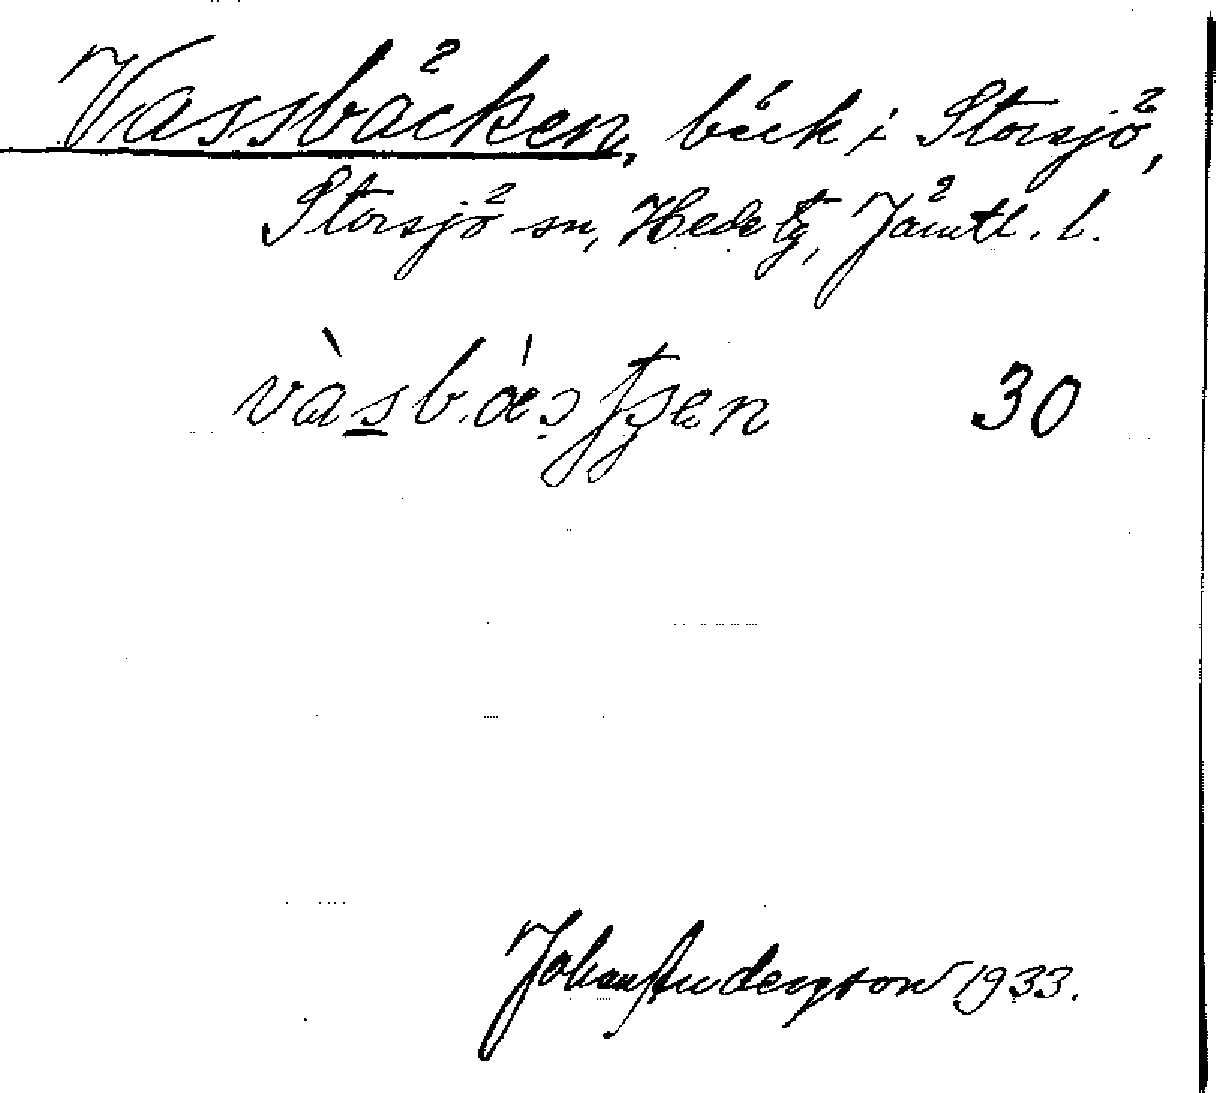 Vassbäcken, bäck i Storsjö,
Storsjö sn, Hede tg, Jämtl. l.
30
Johan Anderson 1933.